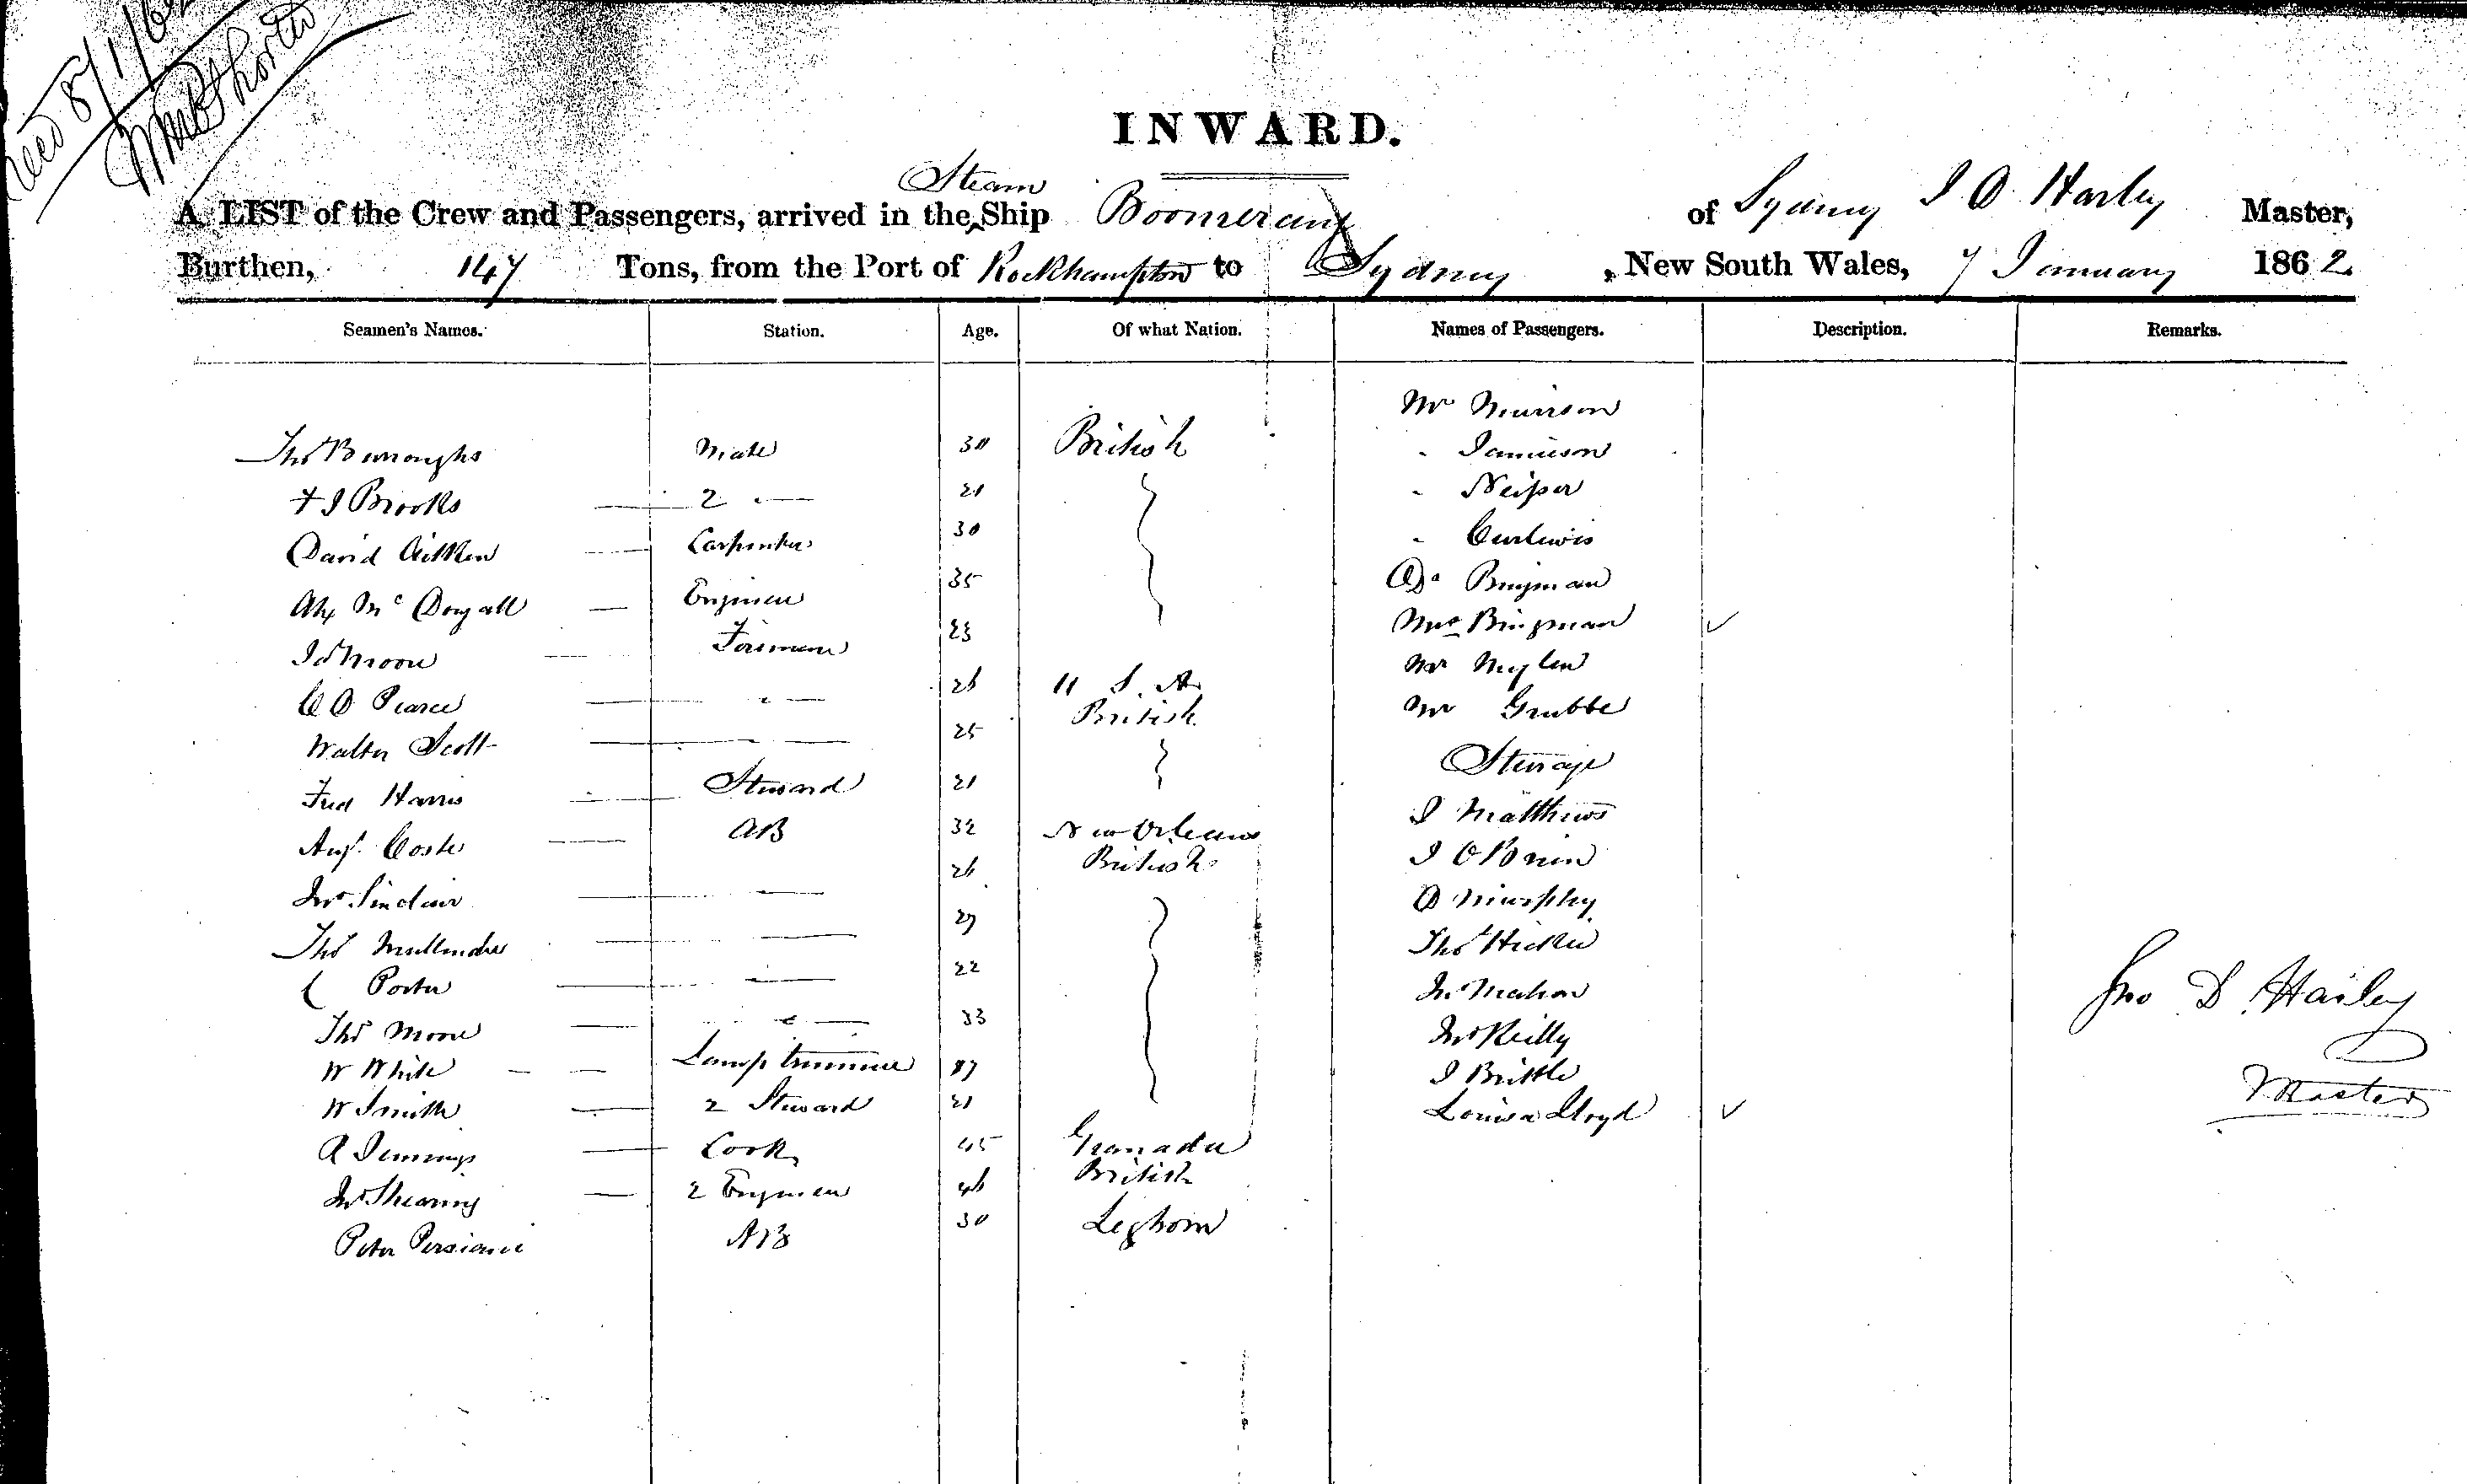 Recd 8/1/62
INWARD.
Steam
A LIST of the Crew and Passengers, arrived in the Ship Boomerang of Sydney J D Harley Master,
Burthen, 147 Tons, from the Port of Rockhampton to Sydney, New South Wales, 7 January 1862
Seamen's Names. Station. Age. Of what Nation. Names of Passengers. Description. Remarks.
Mr Murrison
Thos Burroughs Mate 30 British " Jamieson
J Brooks 2 " 21 "
David Aitken Carpenter 30 " Curlewis
Alex McDougall Engineer 35 Dr Bingman
Js Moore Fireman 23 Mrs Bingman ✓
C D Pearce " 26 U.S.A. Mr
Walter Scott 25 British Mr Grubbe
Fred Harris Steward 21 Steerage
Augt Coste AB 32 New Orleans J Matthews
Jno Sinclair 26 British J O'Brien
Thos 29 D Murphy
Porter 22 Thos Hickie
Thos Moore " 33 Jno Mahon
W White Lamp trimmer 17 Jno Reilly
W Smith 2 Steward 21 J Brittle
A Jennings Cook 45 Granada Louisa Lloyd ✓
Jno Shearing 2 Engineer 46 British
Peter AB 30 Leghorn
Jno D. Harley
Master